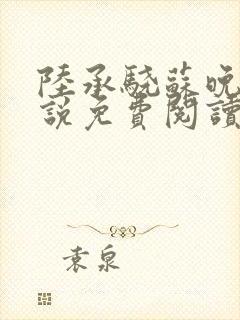 陸承驍蘇晚
説免費閱讀
袁泉